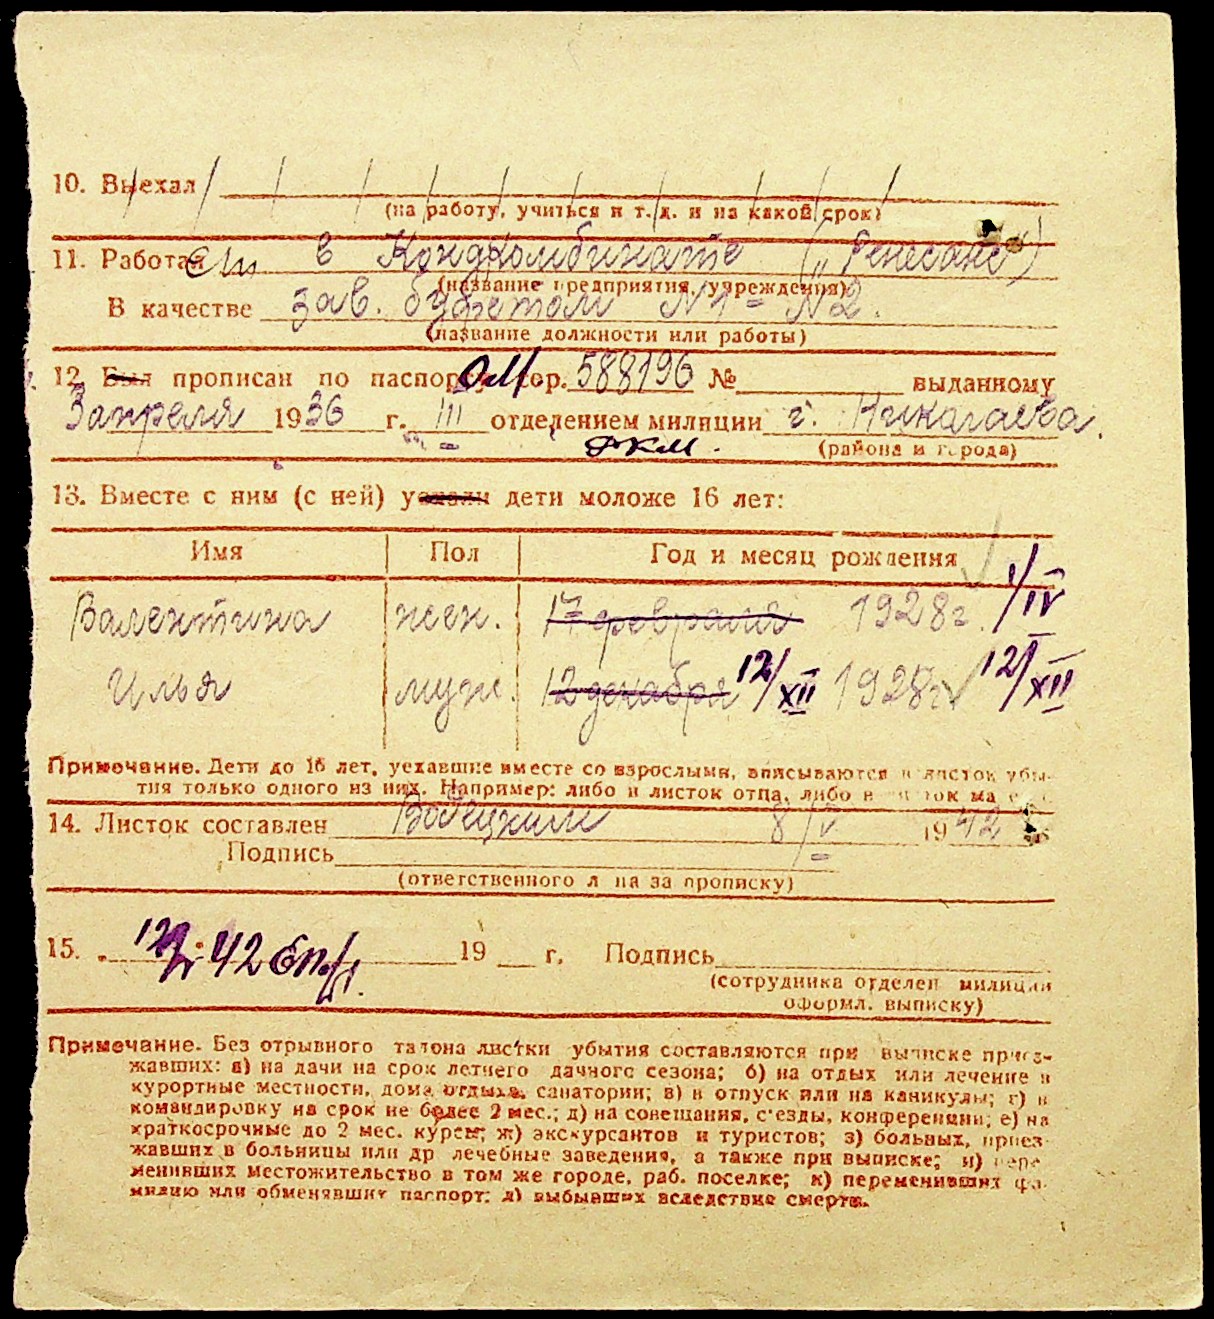 10. Выехал
(на работу, учиться и т. д. и на какой срок)
11. Работает в Кондкомбинате („Ренесанс“)
(название предприятия, учреждения)
В качестве зав. буфетом N1 = N2.
(название должности или работы)
12. Был прописан по паспорту ОМ сер. 588196 № выданному
3 апреля 1936 г. III отделением милиции г. Николаева.
РКМ. (района и города)
13. Вместе с ним (с ней) уехали дети моложе 16 лет:
Имя Пол Год и месяц рождения
Валентина жен. 17 февраля 1928 г. 1/IV
Илья муж. 12 декабря 12/XII 1928 г. 12/XII
Примечание. Дети до 16 лет, уехавшие вместе со взрослыми, вписываются в листок убы-
тия только одного из них. Например: либо в листок отца, либо в листок ма
14. Листок составлен 8/IV 1942
Подпись
(ответственного л на за прописку)
15. 42 19 г. Подпись
(сотрудника отделен милиции
оформл. выписку)
Примечание. Без отрывного талона листки убытия составляются при выписке приез-
жавших: а) на дачи на срок летнего дачного сезона; б) на отдых или лечение в
курортные местности, дома отдыха, санатории; в) в отпуск или на каникулы; г) в
командировку на срок не более 2 мес.; д) на совещания, с'езды, конференции; е) на
краткосрочные до 2 мес. курсы; ж) экскурсантов и туристов; з) больных, приез-
жавших в больницы или др лечебные заведения, а также при выписке; и) пере
менивших местожительство в том же городе, раб. поселке; к) переменивших фа-
милию или обменявших паспорт; л) выбывших вследствие смерти.